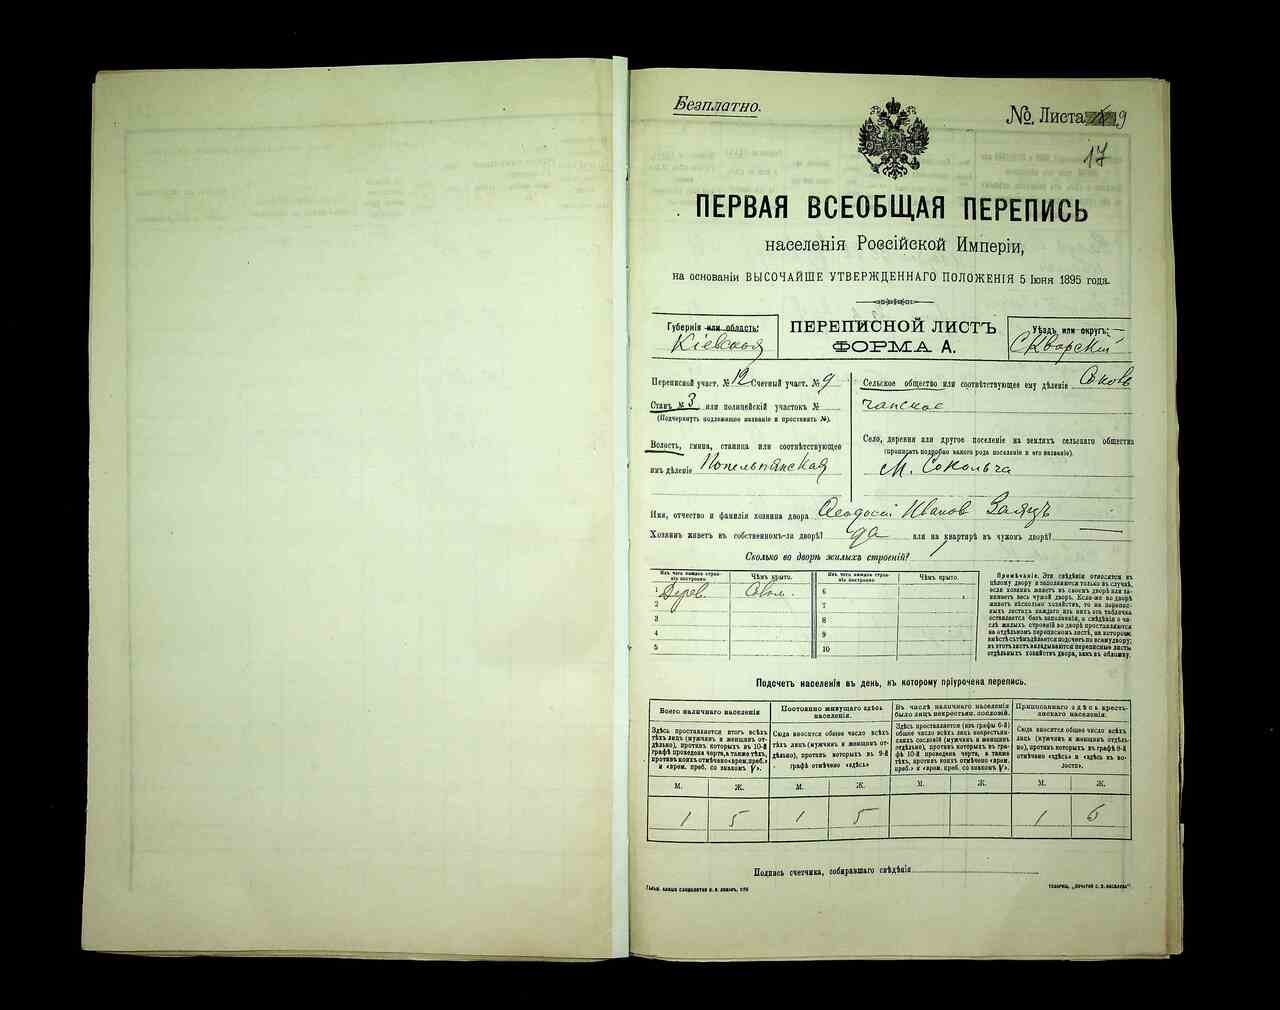 Безплатно.
№. Листа 9
17
ПЕРВАЯ ВСЕОБЩАЯ ПЕРЕПИСЬ
населенія Россійской Имперіи,
на основаніи ВЫСОЧАЙШЕ УТВЕРЖДЕННАГО ПОЛОЖЕНІЯ 5 Іюня 1895 года.
Губернія или область:
Кіевская
ПЕРЕПИСНОЙ ЛИСТЪ
ФОРМА А.
Уѣздъ или округъ:
Сквирскій
Переписной участ. № 12 Счетный участ. № 9
Станъ № 3 или полицейскій участокъ №
(Подчеркнуть подлежащее названіе и проставить №).
Волость, гмина, станица или соотвѣтствующее
имъ дѣленіе Попельнянская
Сельское общество или соотвѣтствующее ему дѣленіе Соколь
чанское
Село, деревня или другое поселеніе на земляхъ сельскаго общества
(прописать подробно какого рода поселеніе и его названіе).
М. Сокольча
Имя, отчество и фамилія хозяина двора Феодосій Ивановъ Заяцъ
Хозяинъ живетъ въ собственномъ-ли дворѣ? да или на квартирѣ въ чужомъ дворѣ?
Сколько во дворѣ жилыхъ строеній?
Изъ чего каждое строеніе построено
Чѣмъ крыто.
Изъ чего каждое строеніе построено
Чѣмъ крыто.
1 Дерев. Солом. 6
2 7
3 8
4 9
5 10
Примѣчаніе. Эти свѣдѣнія относятся къ
цѣлому двору и заполняются только въ случаѣ,
если хозяинъ живетъ въ своемъ дворѣ или за-
нимаетъ весь чужой дворъ. Если-же во дворѣ
живетъ нѣсколько хозяйствъ, то на перепис-
ныхъ листахъ каждаго изъ нихъ эта табличка
оставляется безъ заполненія, а свѣдѣнія о чи-
слѣ жилыхъ строеній во дворѣ проставляются
на отдѣльномъ переписномъ листѣ, на которомъ
вмѣстѣ съ тѣмъ дѣлается подсчетъ по всему двору;
въ этотъ листъ вкладываются переписные листы
отдѣльныхъ хозяйствъ двора, какъ въ обложку.
Подсчетъ населенія въ день, къ которому пріурочена перепись.
Всего наличнаго населенія
Здѣсь проставляется итогъ всѣхъ
тѣхъ лицъ (мужчинъ и женщинъ от-
дѣльно), противъ которыхъ въ 10-й
графѣ проведена черта, а также тѣхъ,
противъ коихъ отмѣчено «врем. преб.»
и «врем. преб. со знакомъ V».
Постоянно живущаго здѣсь
населенія.
Сюда вносится общее число всѣхъ
тѣхъ лицъ (мужчинъ и женщинъ от-
дѣльно), противъ которыхъ въ 9-й
графѣ отмѣчено «здѣсь»
Въ числѣ наличнаго населенія
было лицъ некрестьян. сословій.
Здѣсь проставляется (изъ графы 6-й)
общее число всѣхъ лицъ некрестьян-
скихъ сословій (мужчинъ и женщинъ
отдѣльно), противъ которыхъ въ гра-
фѣ 10-й проведена черта, а также
тѣхъ, противъ коихъ отмѣчено «врем.
преб.» и «врем. преб. со знакомъ V».
Приписаннаго здѣсь кресть-
янскаго населенія.
Сюда вносится общее число всѣхъ
лицъ (мужчинъ и женщинъ отдѣль-
но), противъ которыхъ въ графѣ 8-й
отмѣчено «здѣсь» и «здѣсь въ во-
лости».
М. Ж. М. Ж. М. Ж. М. Ж.
1 5 1 5 1 6
Подпись счетчика, собиравшаго свѣдѣнія